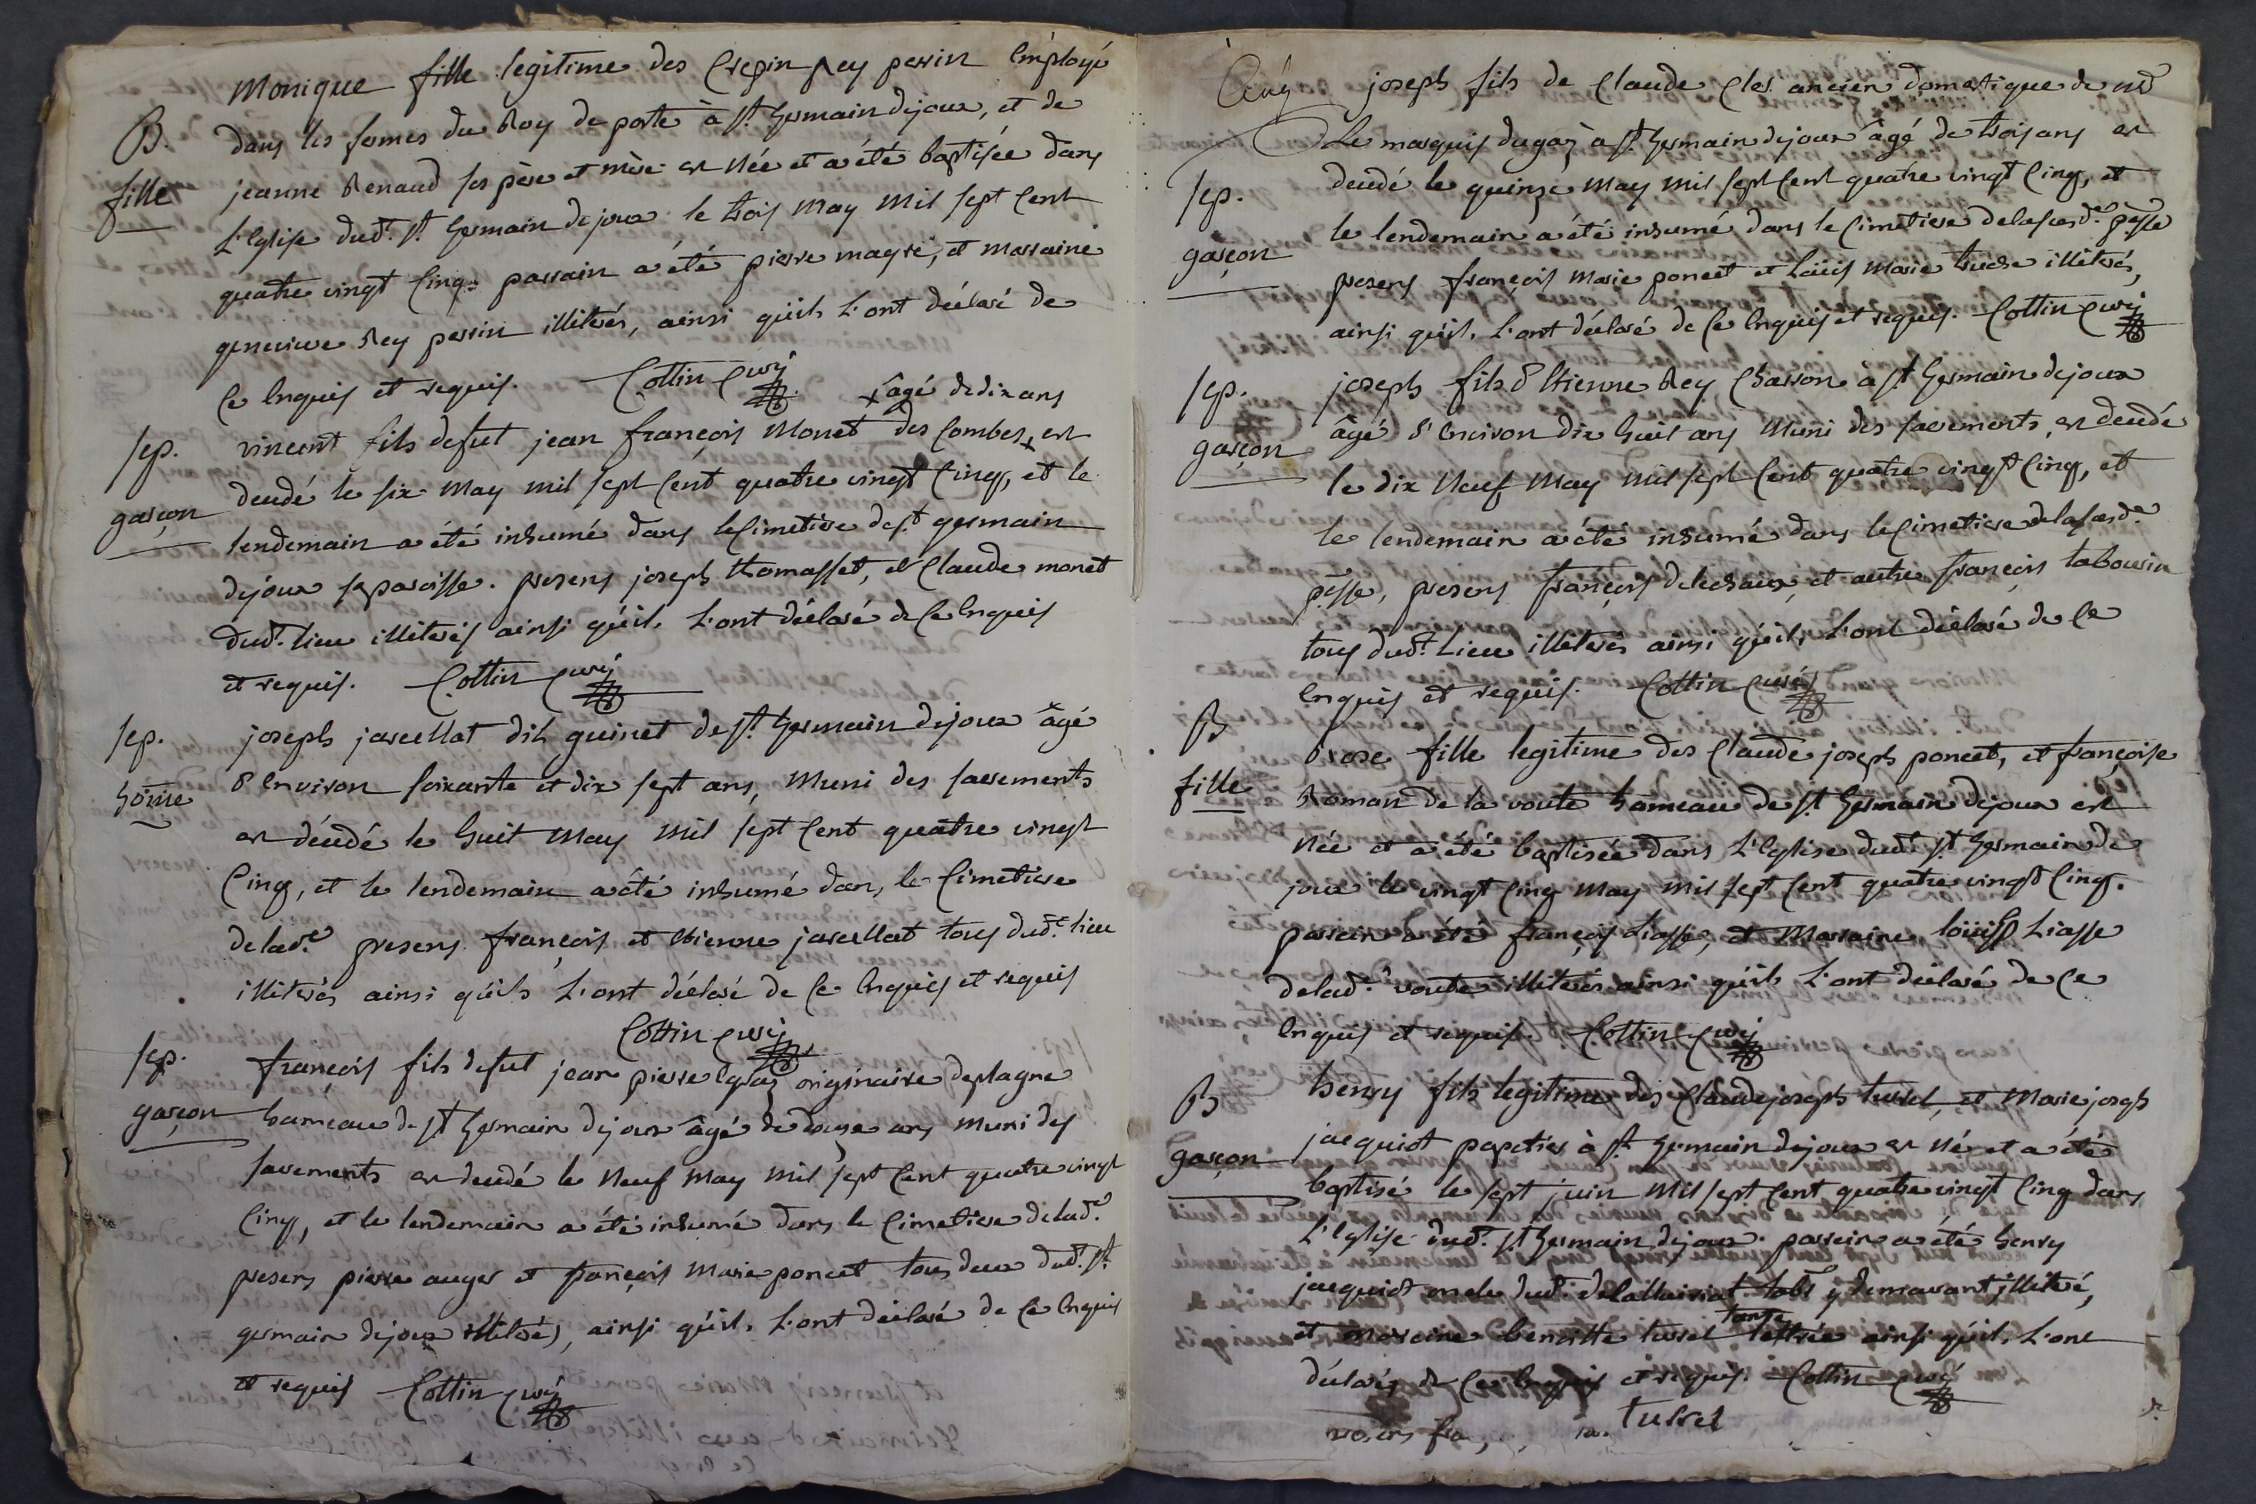 Monique fille legitime des Crepin Rey perrin Employé
B. dans les fermes du Roy de poste à st. Germain dejoux, et de
fille jeanne Renaud ses père et mère est Née et a été baptisée dans
L'Eglise dudt. st Germain de joux le trois may mil sept Cent
quatre vingt Cinq. parrain a été pierre magré, et marraine
genevieve Rey perrin illiterés, ainsi quils L'ont déclaré de
Ce Enquis et requis. Cottin Curé
x âgé de dix ans
sep. vincent fils de fut jean françois Monet des Combes x est
garçon decedé le six may mil sept Cent quatre vingt Cinq, et le
lendemain a été inhumé dans le Cimetiere de st germain
dejoux sa paroisse. presens joseph thomasset, et Claude monet
dudt. lieu illiterés ainsi quils L'ont déclaré de Ce Enquis
et requis. Cottin Curé
sep. joseph javellat dit guinet de st. Germain dejoux âgé
home d'Environ soixante et dix sept ans, Muni des sacrements
est décedé le huit may mil sept Cent quatre vingt
Cinq, et le lendemain a été inhumé dans le Cimetiere
de lade. presens françois et Etienne javellat tous dudt. lieu
illiterés ainsi quils L'ont déclaré de Ce Enquis et requis
Cottin Curé
sep. françois fils de fut jean pierre originaire de plagne
garçon hameau de st Germain dejoux âgé de douze ans muni des
sacrements est decedé le Neuf may mil sept Cent quatre vingt
Cinq, et le lendemain a été inhumé dans le Cimetiere de lade.
presens pierre auger et françois Marie poncet tous deux dudt. st.
germain dejoux illiterés, ainsi quils L'ont déclaré de Ce Enquis
et requis Cottin Curé
joseph fils de Claude Cler ancien domestique de md
Le marquis dugaz à st Germain dejoux âgé de trois ans est
sep. decedé le quinze may mil sept Cent quatre vingt Cinq, et
garçon le lendemain a été inhumé dans le Cimetiere de la susde. psse
presens françois Marie poncet et Loüis Marie illiterés,
ainsi quils L'ont déclaré de Ce Enquis et requis. Cottin Curé
sep. joseph fils d'Etienne Rey Charron à st Germain dejoux
garçon âgé d'Environ dix huit ans Muni des sacrements, est decedé
le dix Neuf may mil sept Cent quatre vingt Cinq, et
le lendemain a été inhumé dans le Cimetiere de la susde.
psse, presens françois delechaux, et autre françois tabourin
tous dudt. Lieu illiterés ainsi quils L'ont déclaré de Ce
Enquis et requis. Cottin Curé
B Roze fille legitime des Claude joseph poncet, et françoise
fille Roman de la voute hameau de st. Germain dejoux est
Née et a été baptisée dans L'Eglise dudt st Germain de
joux le vingt Cinq may mil sept Cent quatre vingt Cinq.
parrain a été françois Liasse, et Marraine loüise Liasse
de lade. voute illiterés ainsi quils L'ont déclaré de Ce
Enquis et requis. Cottin Curé
B henry fils legitime des Claude joseph turrel, et Marie joseph
garçon jacquiot papetier à st. Germain dejoux est Né et a été
baptisé le sept juin mil sept Cent quatre vingt Cinq dans
L'Eglise dudt. st Germain dejoux. parrain a été henry
jacquiot oncle dudt. y demeurant illiteré,
tante
et marraine benoitte turrel lettrée ainsi quils L'ont
déclaré de Ce Enquis et requis. Cottin Curé
turrel